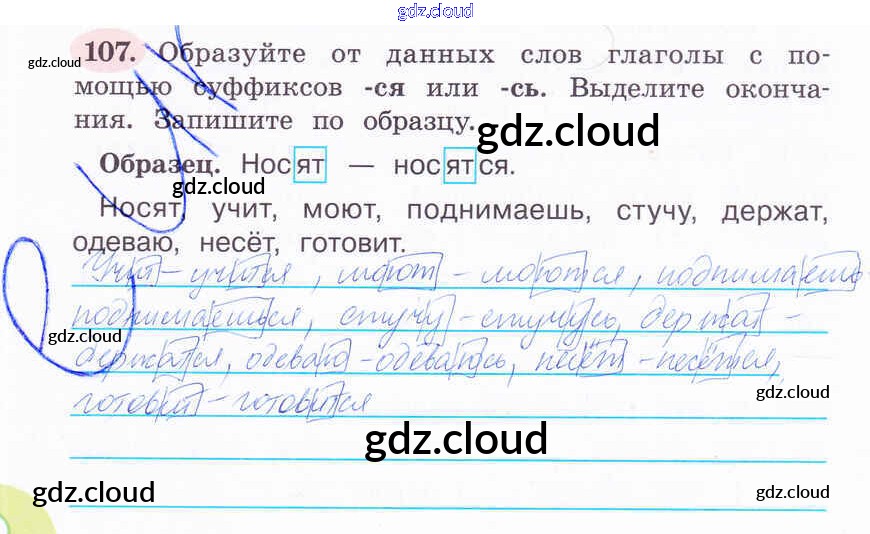 gdz.cloud
107. Образуйте от данных слов глаголы с по-
gdz.cloud
мощью суффиксов -ся или -сь. Выделите оконча-
ния. Запишите по образцу.
gdz.cloud
Образец. Носят — носятся.
gdz.cloud
Носят, учит, моют, поднимаешь, стучу, держат,
одеваю, несёт, готовит.
Учит - учится, моют - моются, поднимаешь -
поднимаешься, стучу - стучусь, держат -
gdz.cloud
держатся, одеваю - одеваюсь, несёт - несётся,
gdz.cloud
готовит - готовится
gdz.cloud
gdz.cloud
gdz.cloud